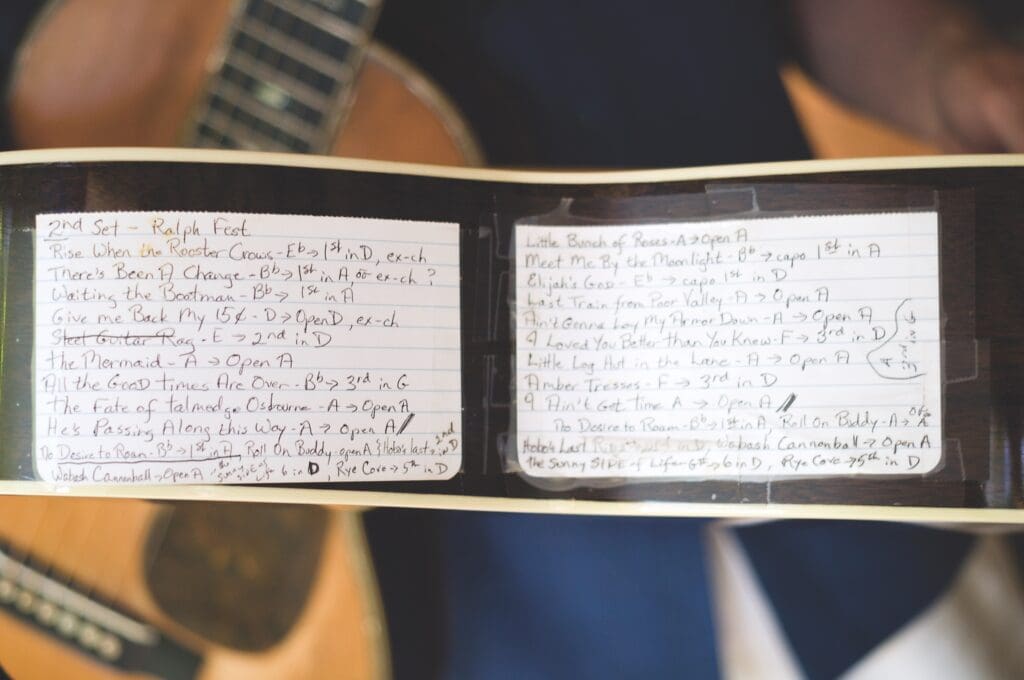 2nd Set - Ralph Fest
Rise When the Rooster Crows - Eb → 1st in D, ex-ch
There's Been A Change - Bb → 1st in A, or ex-ch ?
Waiting the Boatman - Bb → 1st in A
Give me Back My 15¢ - D → Open D, ex-ch
Steel Guitar Rag - E → 2nd in D
The Mermaid - A → Open A
All the GooD Times Are Over - Bb → 3rd in G
The Fate of Talmedge Osbourne - A → Open A
He's Passing Along this Way - A → Open A
No Desire to Roam - Bb → 1st in A, Roll On Buddy - open A { Hobo's last → 2nd in D
Wabash Cannonball → Open A, the sunny side of Life 6 in D, Rye Cove → 5th in D
Little Bunch of Roses - A → Open A
Meet Me By the Moonlight - Bb → capo 1st in A
Elijah's God - Eb → capo 1st in D
Last Train from Poor Valley - A → Open A
Ain't Gonna Lay My Armor Down - A → Open A
I Loved You Better Than You Knew - F → 3rd in D
A 3rd in G
Little Log Hut in the Lane - A → Open A
Amber Tresses - F → 3rd in D
I Ain't Got Time A → Open A
No Desire to Roam - Bb → 1st in A, Roll On Buddy - A → Open A
Hobo's Last in D → Wabash Cannonball → Open A
The Sunny SIDE of Life - G# → 6 in D, Rye Cove → 5th in D